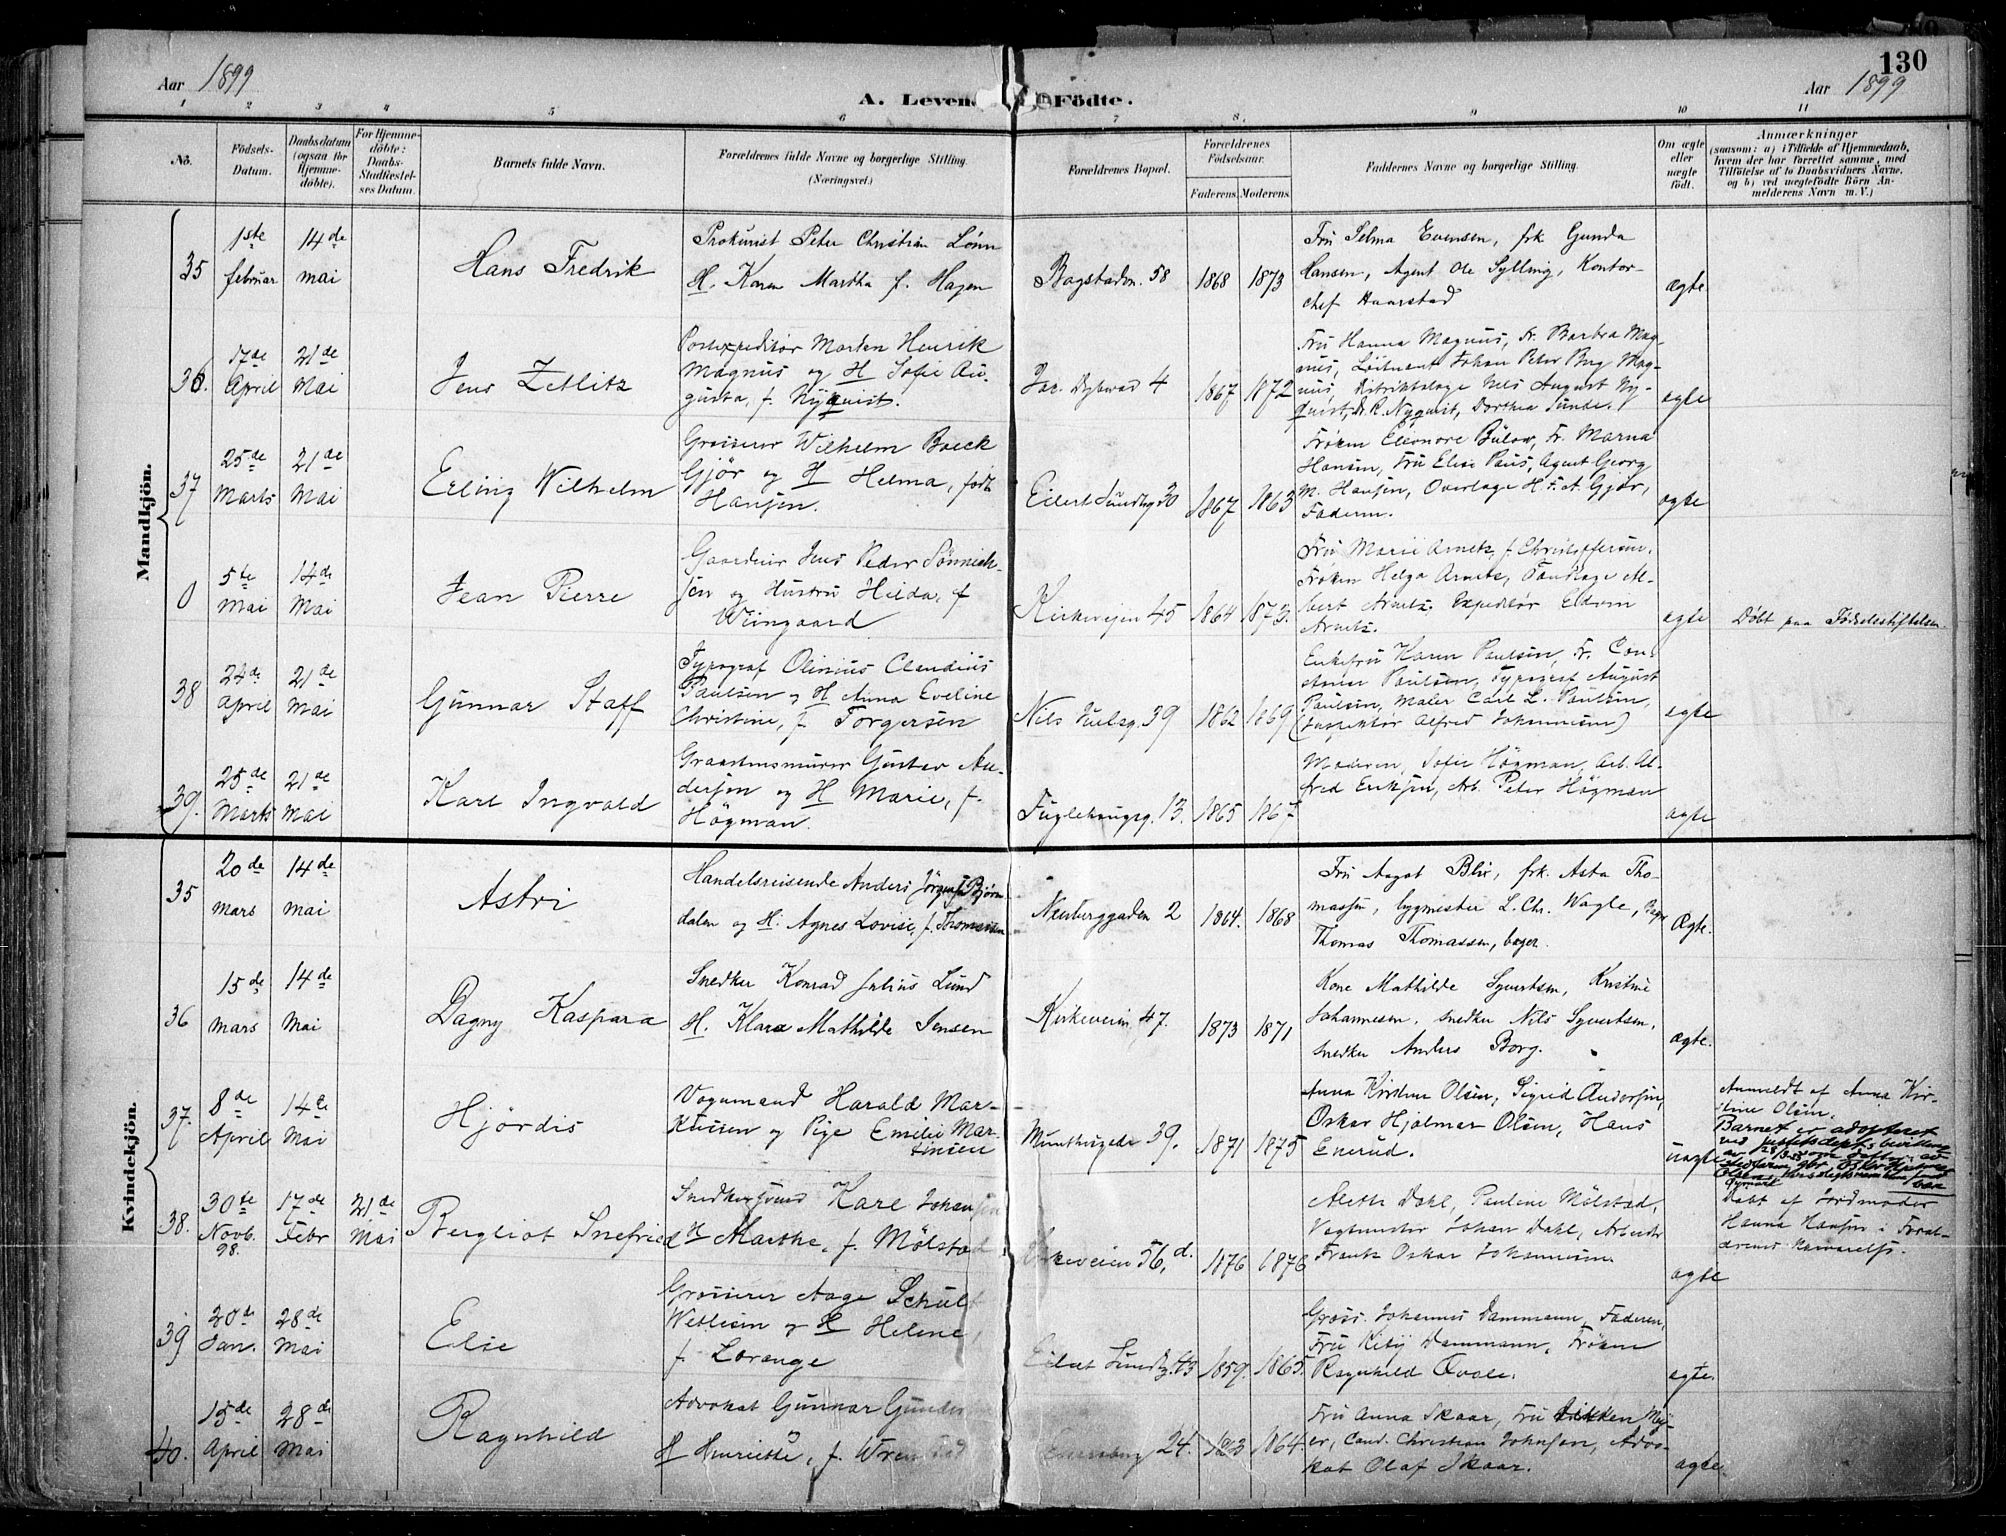 130
Aar 1899
A. Levende Födte.
Aar 1899
1 2 3 4 5 6 7 8. 9 10 11
No.
Födsels-
Datum.
Daabsdatum
(ogsaa for
Hjemme-
döbte).
For Hjemme-
döbte:
Daabs-
Stadfæstel-
ses Datum.
Barnets fulde Navn.
Forældrenes fulde Navne og borgerlige Stilling.
(Næringsvei.)
Forældrenes Bopæl.
Forældrenes
Födselsaar.
Faderens. Moderens.
Faddernes Navne og borgerlige Stilling.
Om ægte
eller
uægte
födt.
Anmærkninger
(saasom: a) i Tilfælde af Hjemmedaab,
hvem der har forrettet samme, med
Tilföielse af to Daabsvidners Navne,
og b) ved uægtefödte Börn An-
melderens Navn m. V.)
Mandkjön.
35
1ste februar
14de mai
Hans Fredrik
Prokurist Peter Christian Lönn
H. Karen Martha f. Hagen
Bogstadvn. 58
1868 1873
Fru Selma Evensen, frk Gunda
Hansen, Agent Ole Sylling, Kontor-
chef Haarstad
ægte
36.
17de April
21de Mai
Jens Zetlitz
Postexpeditör Morten Henrik
Magnus og H Sofie Au-
gusta, f. Nyquist.
Jac. Dybwad 4
1867 1872
Fru Hanna Magnus, Fr. Barbra Mag-
nus, Löitnant Johan Peter Magnus,
Distriktslæge Nils August Ny-
quist, Dr. R. Nyquist, Dorthea Sunde.
ægte
37
25de Marts
21de Mai
Erling Wilhelm
Grosserer Wilhelm Boeck
Gjör og H Helma, födt
Hansen.
Eilert Sundtsg 30
1867 1863
Fröken Eleonore Bülow, Fr. Marna
Hansen, Fru Elise Paus, Agent Georg
M. Hansen, Overlæge H. F. A. Gjör,
Faderen.
ægte
0
5te Mai
14de Mai
Jean Pierre
Gaardeier Jens Peder Sönnich-
sen og Hustru Hilda, f
Wiingaard
Kirkeveien 45
1864 1873.
Fru Marie Arnetz, f. Christoffersen,
Fröken Helga Arnetz, Tandlæge Al-
bert Arnetz, Expeditör Edvin
Arnetz.
ægte
Döbt paa Födselsstiftelsen
38
24de April
21de Mai
Gunnar Staff
Typograf Olinius Claudius
Paulsen og H Anna Eveline
Christine, f Torgersen
Nils Juelsg. 39
1862 1869
Enkefru Karen Paulsen, Fr. Con-
stance Paulsen, Typograf August
Paulsen, Maler Carl L. Paulsen,
(Inspektör Alfred Johannesen)
ægte
39.
25de Marts
21de Mai
Karl Ingvald
Graastensmurer Gustav An-
dersen og H Marie, f.
Högman.
Fuglehaugsg. 13.
1865 1867
Moderen, Sofie Högman, Arb. Al-
fred Eriksen, Arb. Peter Högman
ægte
Kvindekjön.
35
20de mars
14de mai
Astri
Handelsreisende Anders Jörgensen Björn
dalen og H. Agnes Lovise, f. Thomassen
Neuberggaden 2
1864. 1868
Fru Aagot Blix, frk. Asta Tho-
massen, bygmester L. Chr. Wagle,
Thomas Thomassen, bager.
Ægte.
36
15de mars
14de Mai
Dagny Kaspara
Snedker Konrad Julius Lund
H. Klara Mathilde Jensen
Kirkeveien 47.
1873 1871
Kone Mathilde Syvertsen, Kristine
Johannesen, snedker Nils Syvertsen,
snedker Anders Borg.
ægte.
37.
8de April
14de Mai
Hjördis
Vognmand Harald Mar-
kussen og Pige Emelie Mar-
tinsen
Munthesgade 39.
1871 1875
Anna Kirstine Olsen, Sigrid Andersen,
Oskar Hjalmar Olsen, Hans
Enerud.
uægte
Anmeldt af Anna Kir-
stine Olsen.
Barnet er adopteret
ved justisdepts bevilling
38.
30te Novb. 98.
17de Febr
21de Mai
Bergliot Snefrid
Snedkersvend Karl Johansen
H Marthe, f. Mölstad
Kirkeveien 56, d.
1876 1876
Aleth Dahl, Pauline Mölstad,
Vægtmester Johan Dahl, Arbeider
Frantz Oskar Johannesen
ægte
Döbt af Jordmoder
Hanna Hansen i Foræl-
drenes nærværelse.
39
20de Jan.
28de Mai
Else
Grosserer Aage Schult
Wetlesen og H Helene,
f. Lorange
Eilert Sundtsg. 43
1859. 1865.
Gross. Johannes Dammann, Faderen,
Fru Kitty Dammann, Fröken
Ragnhild Qvale.
ægte.
40.
15de April
28de Mai
Ragnhild
Advokat Gunnar Gunder
H Henriette, f. Wrensted
24.
1864.
Fru Anna Skaar, Fru Likken Mey-
er, Cand. Christian Johnsen, Advo-
kat Olaf Skaar.
ægte